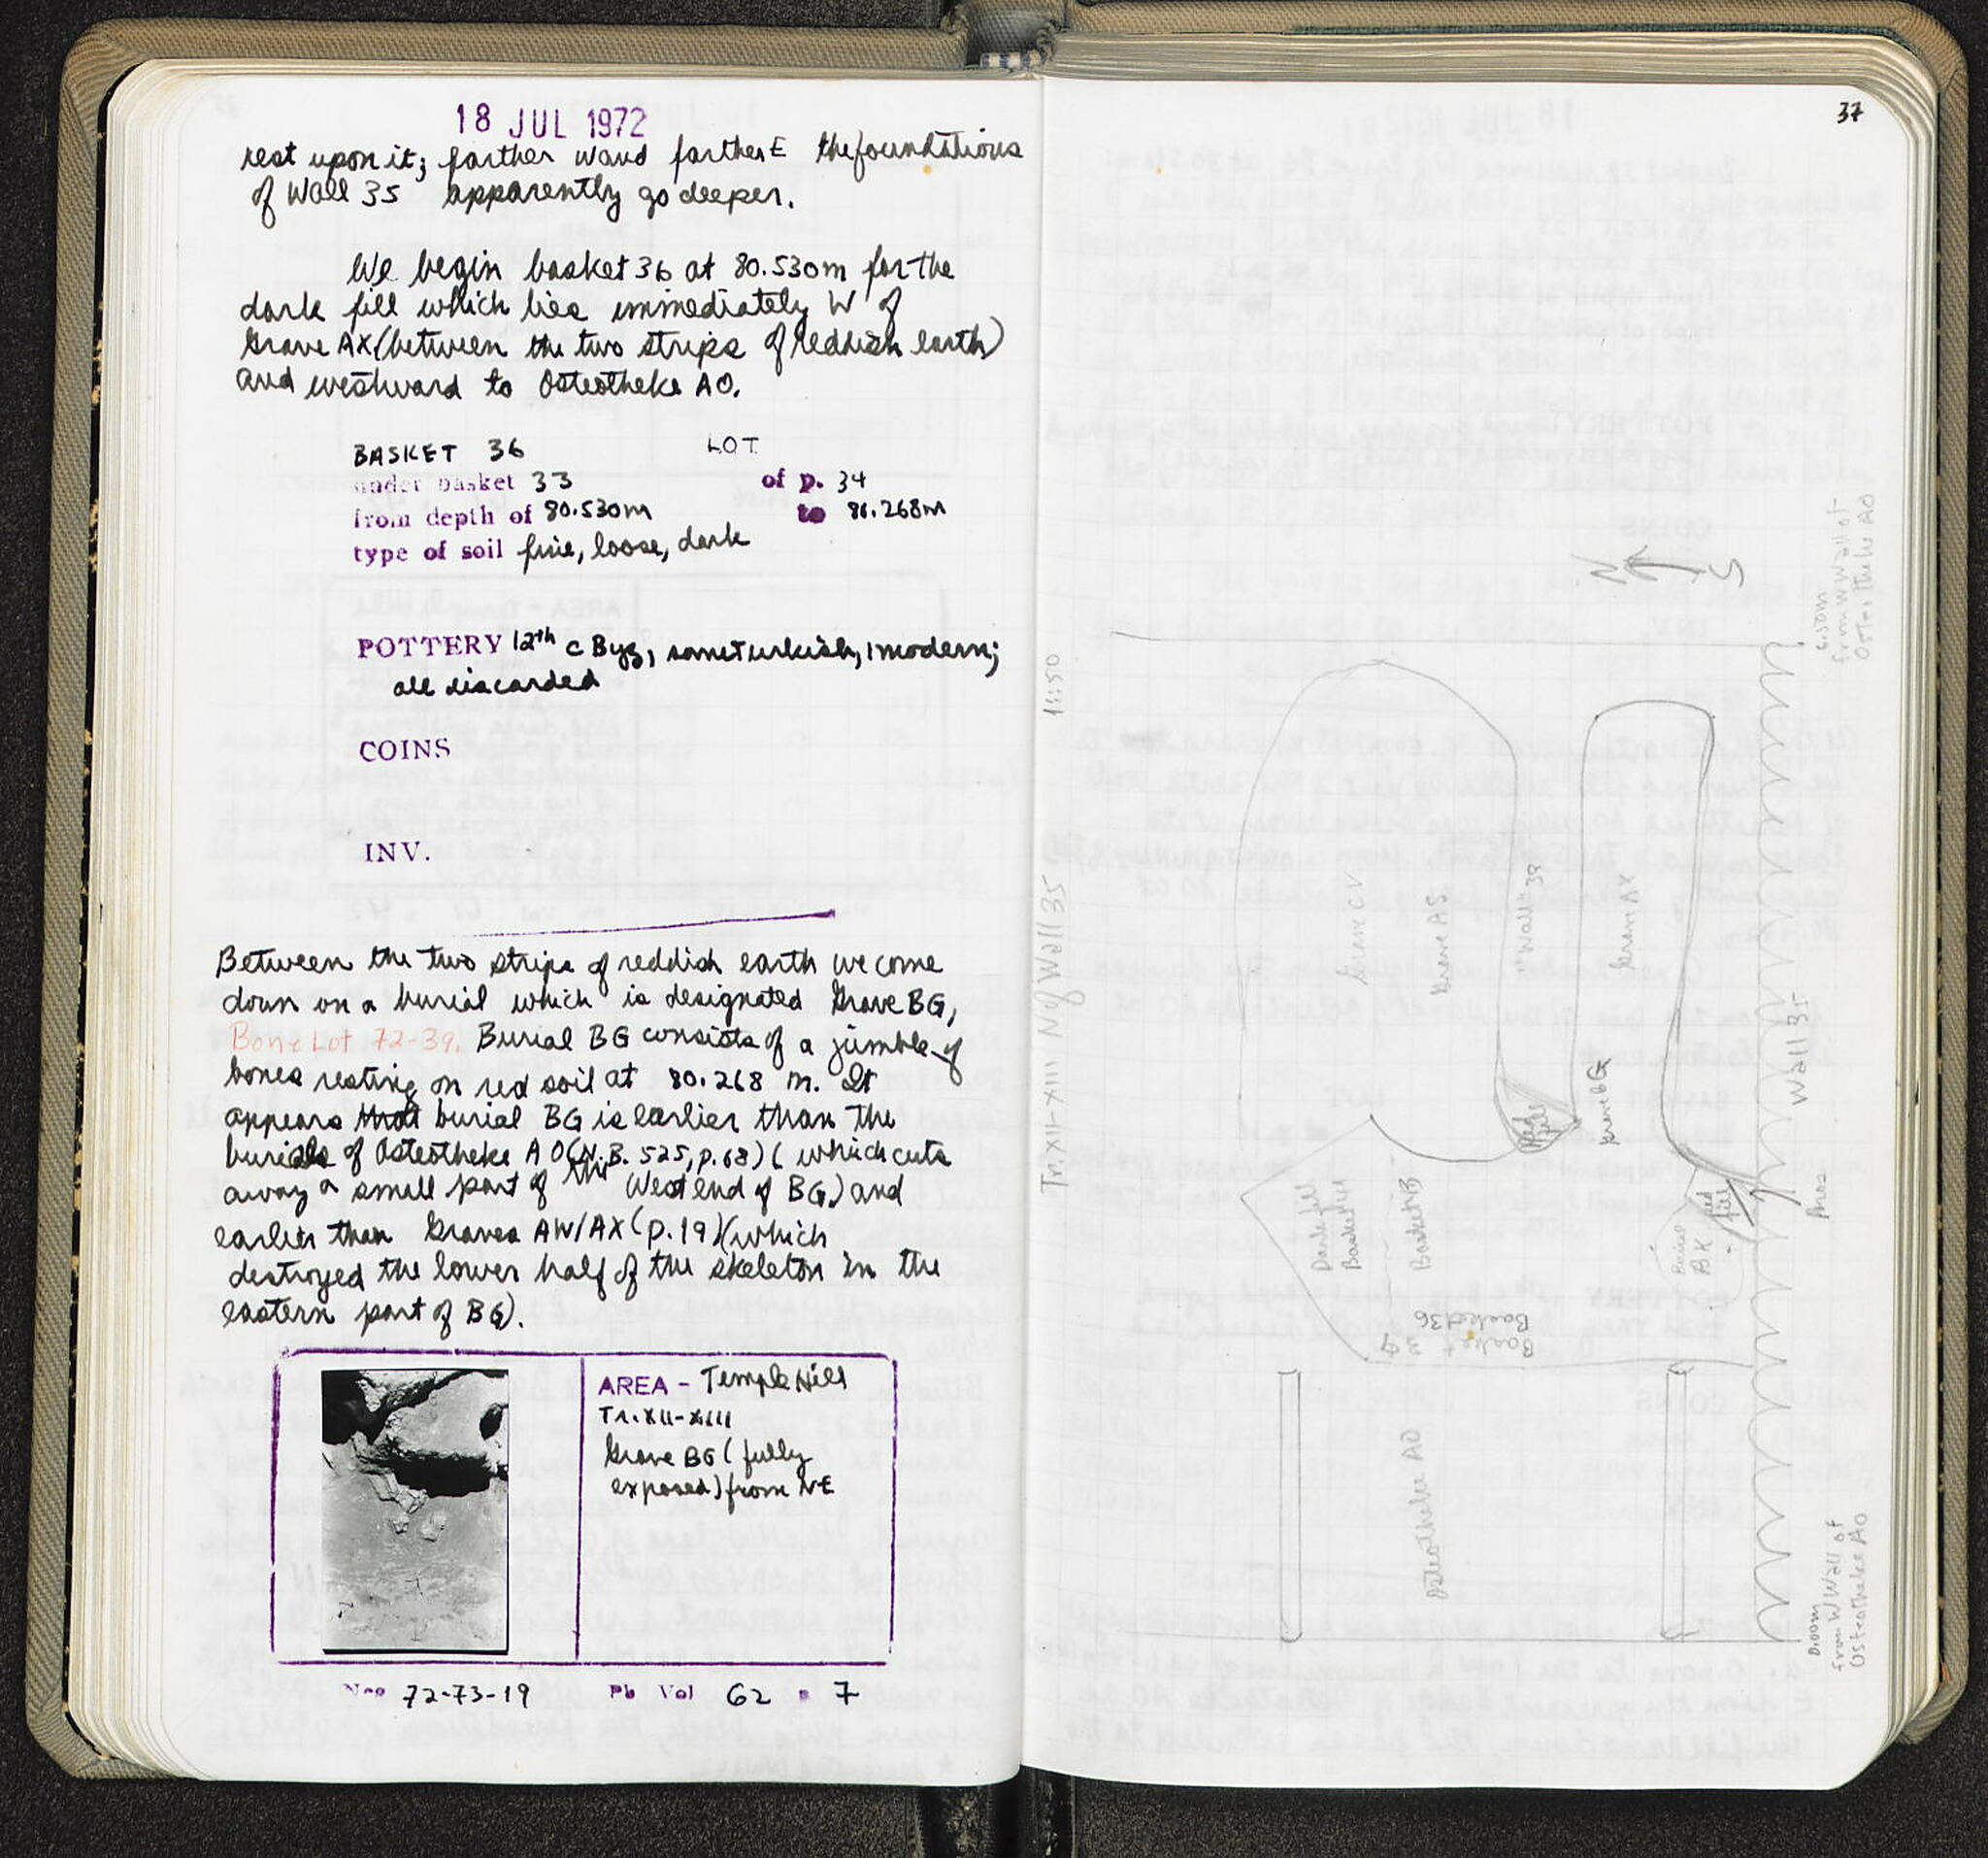 18 JUL 1972
rest upon it; farther W and farther E the foundations
of Wall 35 apparently go deeper.
We begin basket 36 at 80.530m for the
dark fill which lies immediately W of
Grave AX (between the two strips of reddish earth)
and westward to Osteotheke AO.
BASKET 36 LOT
under basket 33 of p. 34
from depth of 80.530m to 80.268m
type of soil fine, loose, dark
POTTERY 12th c Byz, some Turkish, 1 modern;
all discarded
COINS
INV.
Between the two strips of reddish earth we come
down on a burial which is designated Grave BG,
Bone Lot 72-39. Burial BG consists of a jumble of
bones resting on red soil at 80.268 m. It
appears that burial BG is earlier than the
burials of Osteotheke AO (N.B. 525, p. 68) (which cuts
away a small part of the West end of BG) and
earlier than Graves AW/AX (p. 19) (which
destroyed the lower half of the skeleton in the
eastern part of BG).
AREA - Temple Hill
Tr. XII-XIII
Grave BG (fully
exposed) from NE
Neg 72-73-19 Pb Vol 62 • 7
37
N S
6.50m
from W Wall of
Osteotheke AO
Tr. XII-XIII N of Wall 35 1:50
Grave CV
Grave AS
"Wall" 38
Grave AX
Wall 35
Grave BG
Red
fill
Dark fill
Basket 44
Basket 43
Burial
BK
Red
fill
Basket 36
Basket
Osteotheke AO
0.00m
from W Wall of
Osteotheke AO